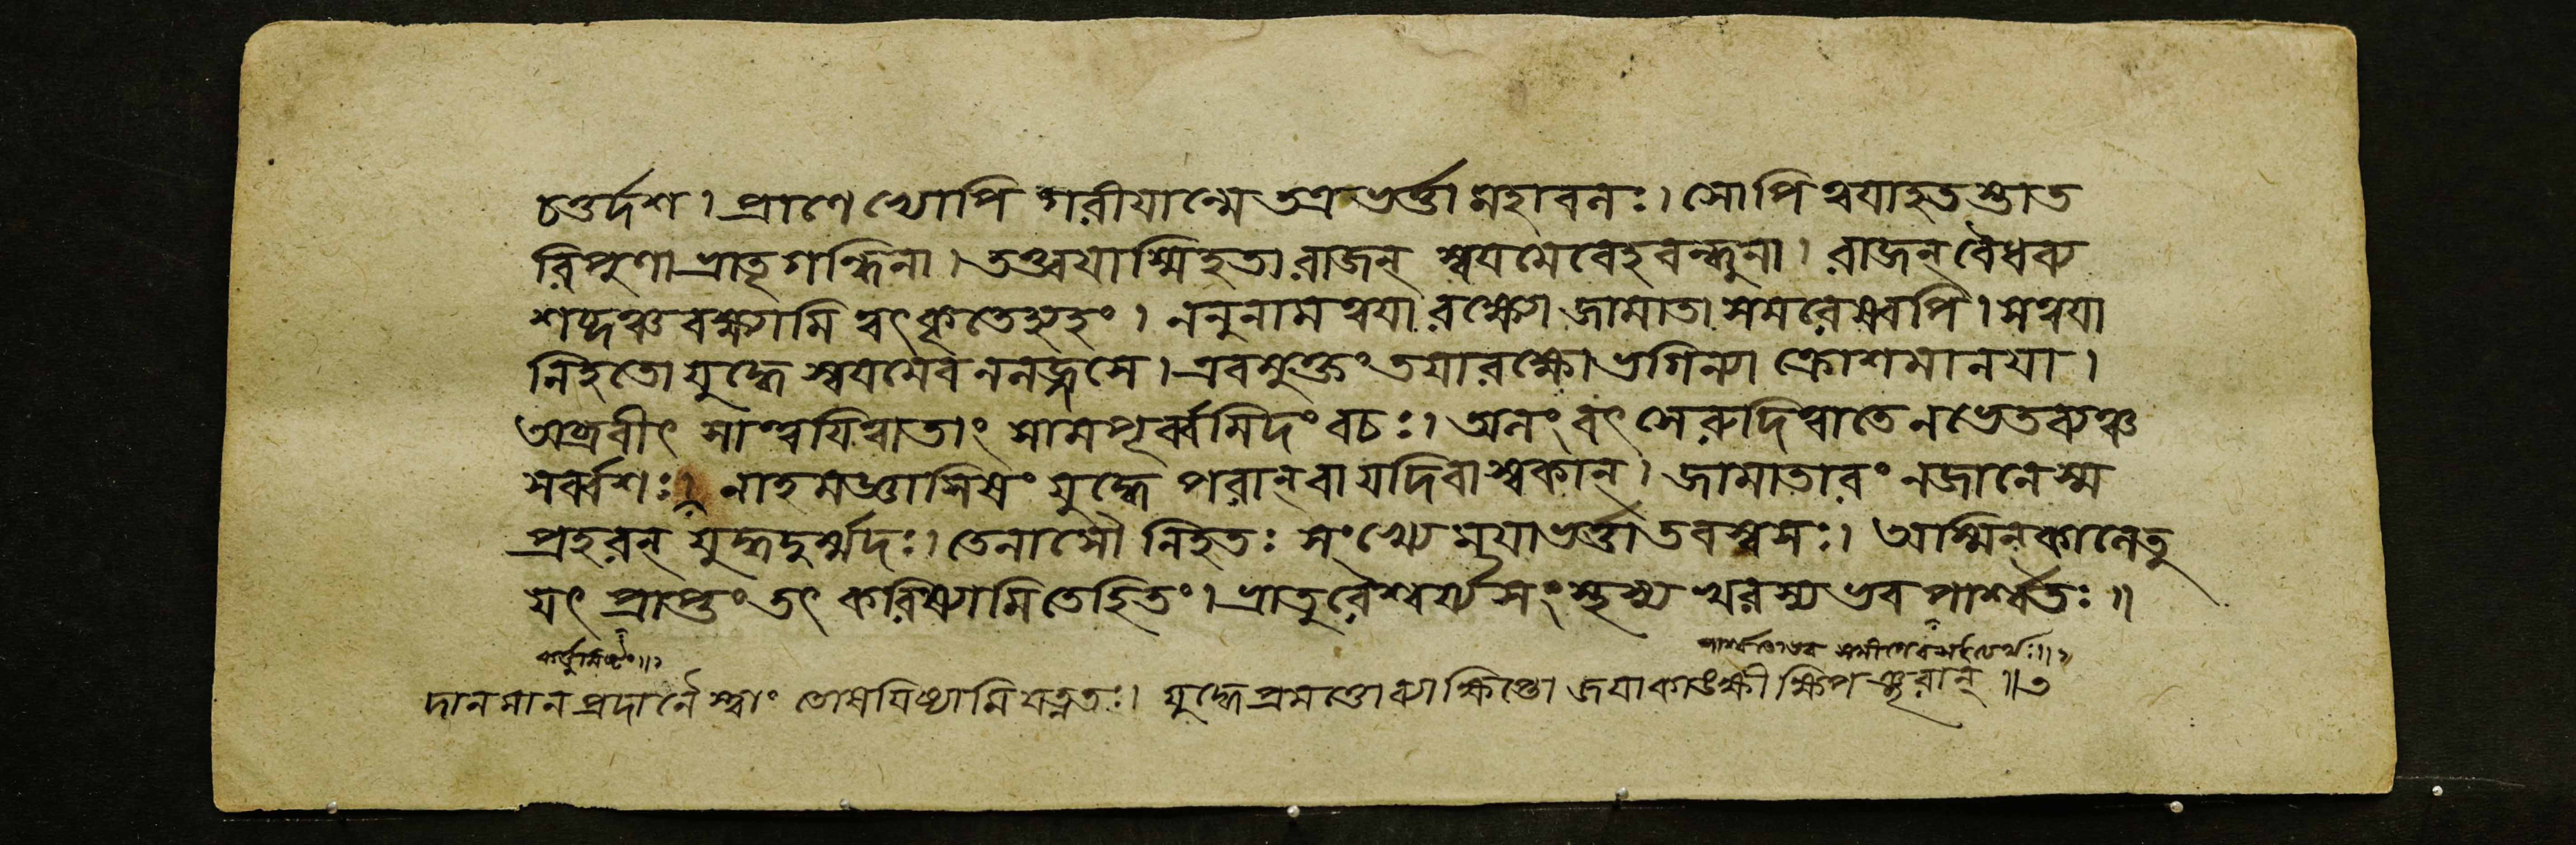 চতুর্দশ। প্রাণেভ্যোপি গরীযান্মে তত্র ভর্ত্তা মহাবলঃ। সোপি ত্বযাহতস্তাত
রিপুণা ভ্রাতৃগন্ধিনা। তত্ত্বযাস্মিহতা রাজন্ স্বযমেবেহবন্ধুনা। রাজন্ বৈধব্য
শব্দঞ্চ বক্ষ্যামি ত্বৎকৃতেহ্যহং। ননুনাম ত্বযা রক্ষ্যো জামাতা সমরেষ্বপি। স ত্বযা
নিহতো যুদ্ধে স্বযমেব ন লজ্জসে। এবমুক্তং তযা রক্ষো ভগিন্যা ক্রোশমানযা।
অব্রবীৎ সান্ত্বযিত্বা তাং সামপূর্ব্বমিদং বচঃ। অলং বৎসে রুদিত্বা তে ন ভেতব্যঞ্চ
সর্ব্বশঃ। নাহমজ্ঞাসিষং যুদ্ধে পরান্ বা যদি বা স্বকান্। জামাতারং ন জানে স্ম
প্রহরন্ যুদ্ধদুর্ম্মদঃ। তেনাসৌ নিহতঃ সংখ্যে মযা ভর্ত্তা তব স্বসঃ। অস্মিন্ কালে তু
যৎ প্রাপ্তং তৎ করিষ্যামি তে হিতং। ভ্রাতুরৈশ্বর্য্যসংস্থস্য খরস্য ভব পার্শ্বতঃ॥
দানমানপ্রদানৈস্ত্বাং তোষযিষ্যামি যত্নতঃ। যুদ্ধে প্রমত্তো ব্যাক্ষিপ্তো জযাকাঙ্ক্ষী ক্ষিপঞ্ছরান্॥৩